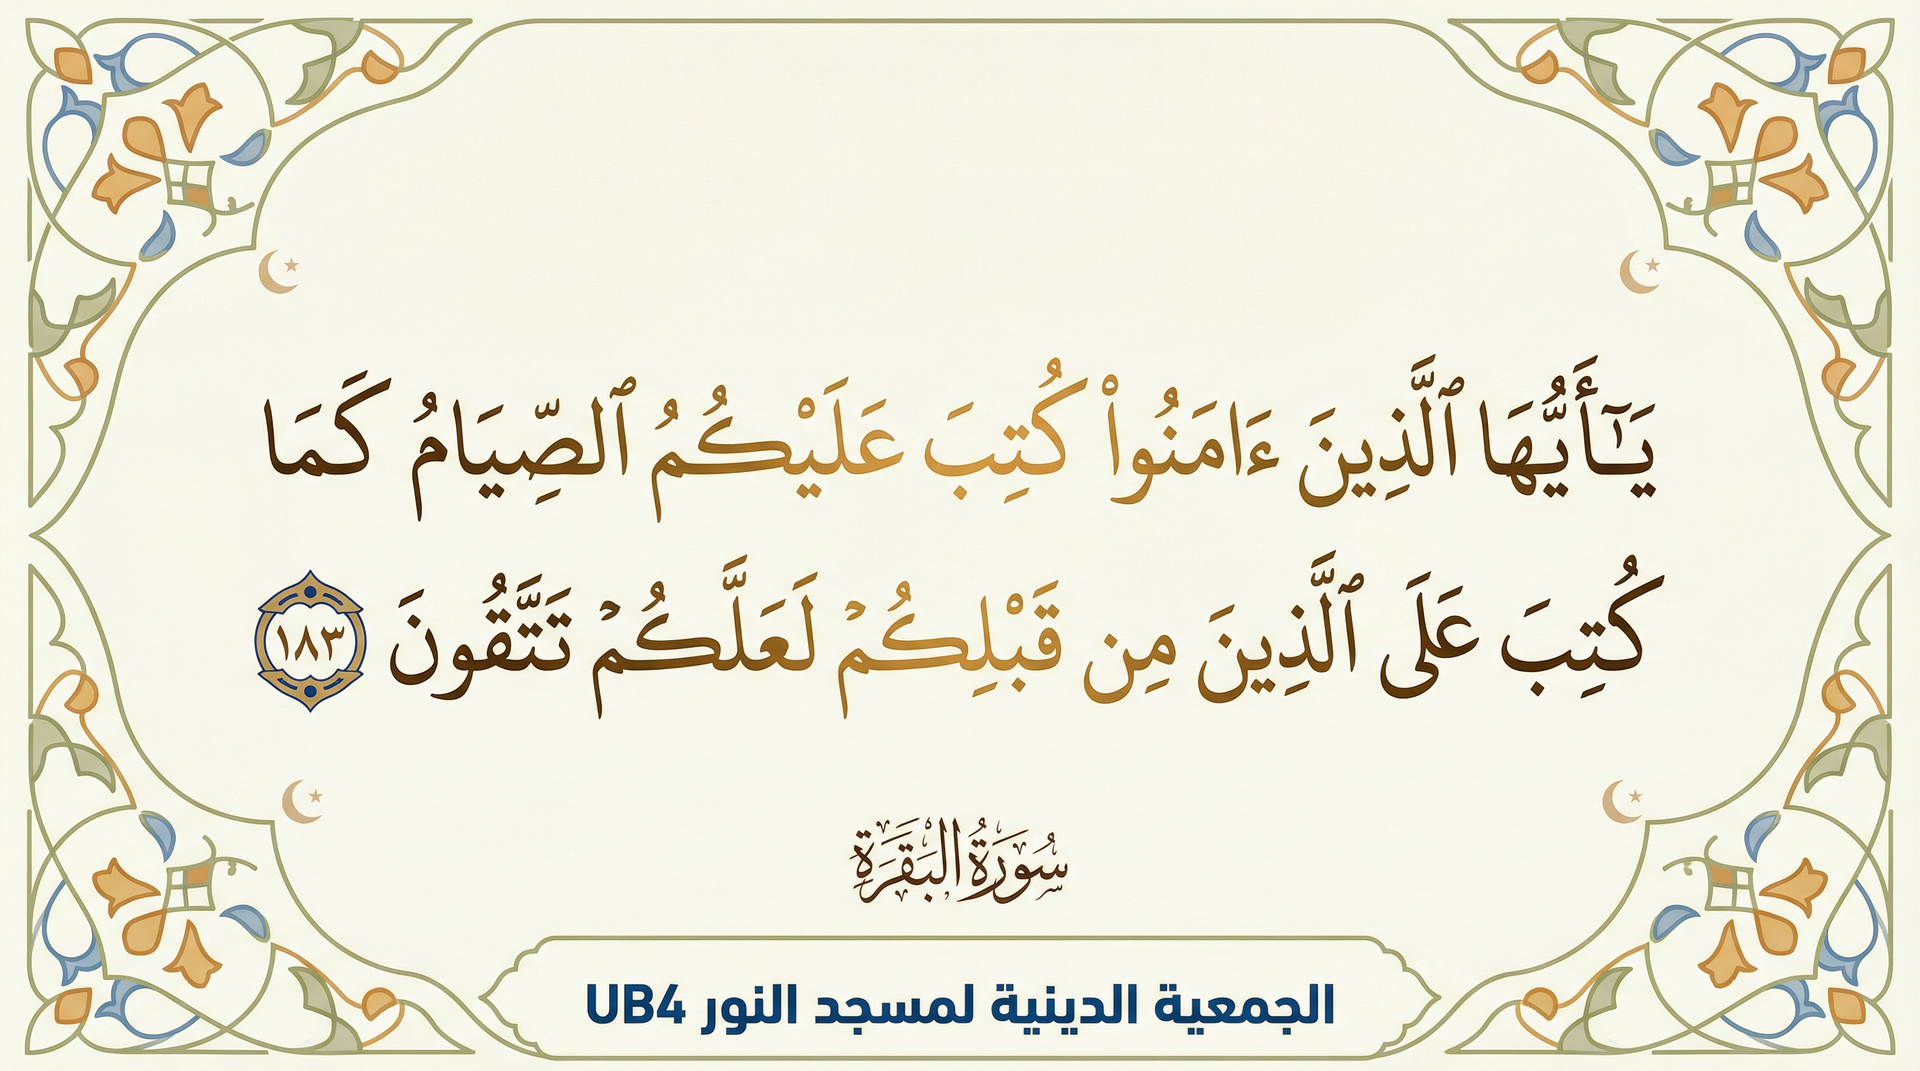 يَـٰٓأَيُّهَا ٱلَّذِينَ ءَامَنُوا۟ كُتِبَ عَلَيْكُمُ ٱلصِّيَامُ كَمَا
كُتِبَ عَلَى ٱلَّذِينَ مِن قَبْلِكُمْ لَعَلَّكُمْ تَتَّقُونَ ١٨٣
سُورَةُ البَقَرَةِ
الجمعية الدينية لمسجد النور UB4